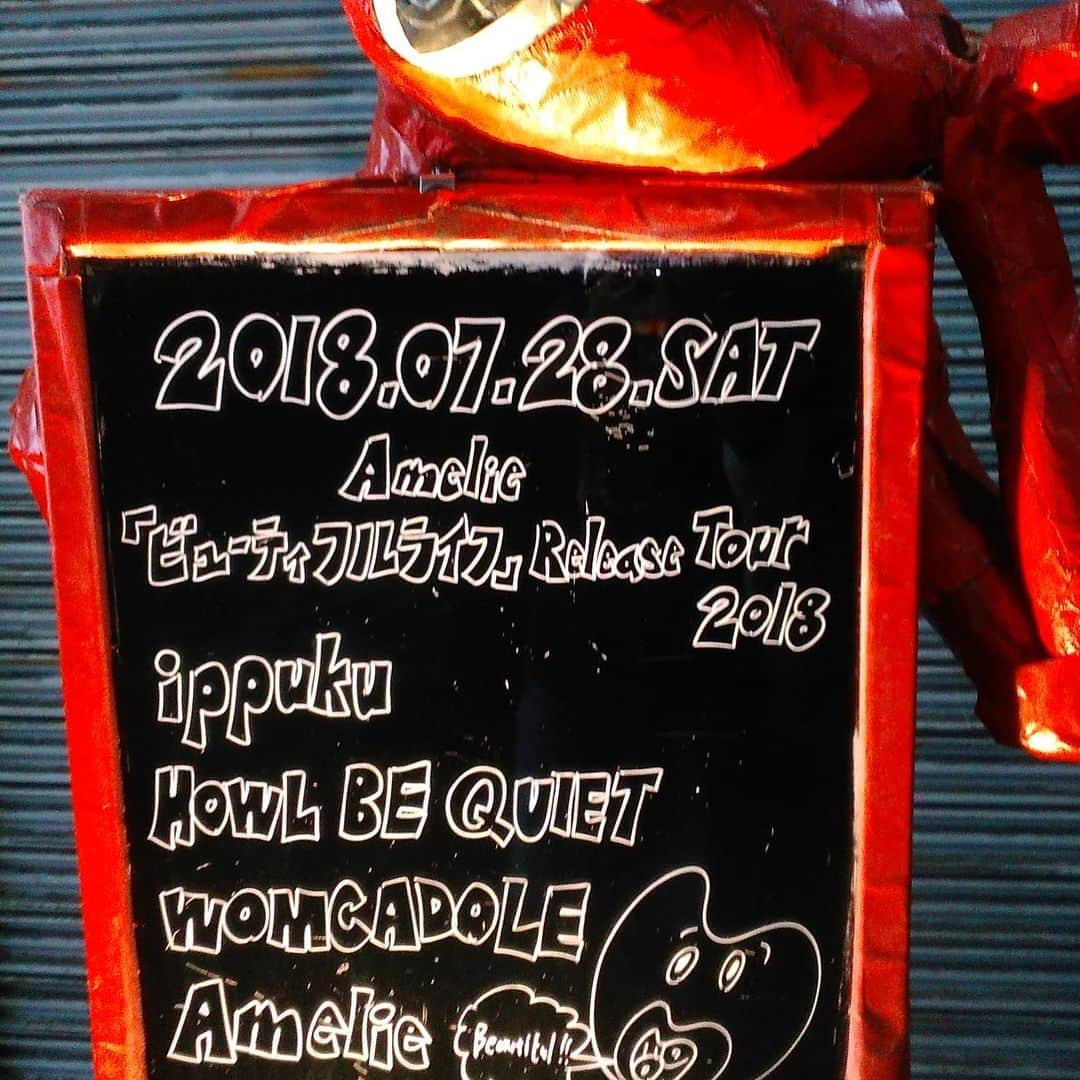 2018.07.28.SAT
Amelie
「ビューティフルライフ」Release Tour
2018
ippuku
HOWL BE QUIET
WOMCADOLE
Amelie
Beautiful!!